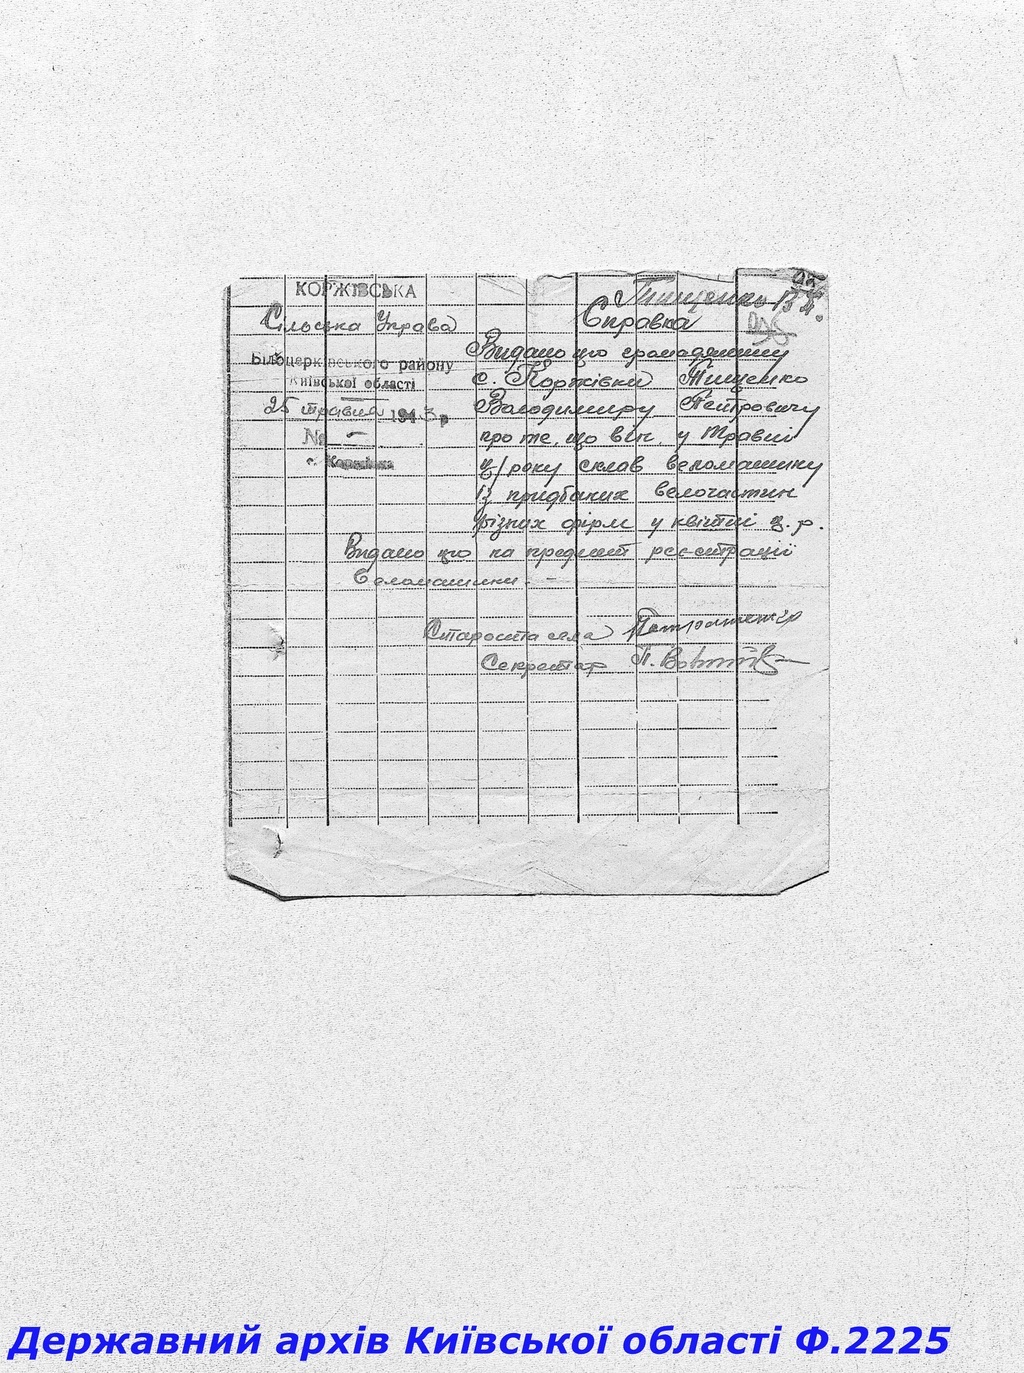 Тищенко В П.
КОРЖІВСЬКА
Сільська Управа
Білоцерківського району
Київської області
25 травня 1943 р
№ –
с. Коржівка
Справка
Видано цю громадянину
с. Коржівки Тищенко
Володимиру Петровичу
про те, що він, у травні
ц/року склав веломашину
із придбаних велочастин
різних фірм у квітні ц. р.
Видано цю на предмет реєстрації
веломашини. –
Староста села
Секретар П.
Державний архів Київської області Ф.2225